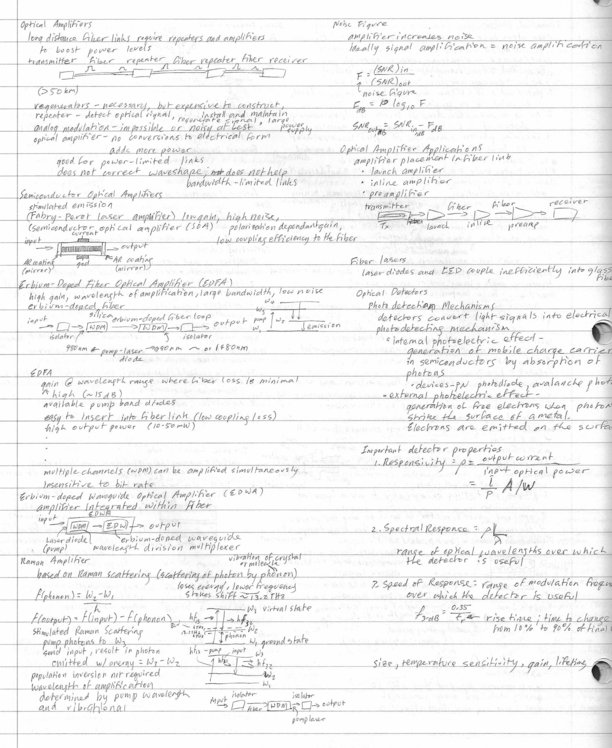 Optical Amplifiers
long distance fiber links require repeaters and amplifiers
to boost power levels
transmitter fiber repeater fiber repeater fiber receiver
(>50km)
regenerators - necessary, but expensive to construct,
install and maintain
repeater - detect optical signal, regenerate signal, large
power supply
analog modulation - impossible or noisy at best
optical amplifier - no conversions to electrical form
adds more power
good for power-limited links
does not correct waveshape, does not help
bandwidth-limited links
Semiconductor Optical Amplifiers
stimulated emission
(Fabry-Perot laser amplifier) low gain, high noise,
(semiconductor optical amplifier (SOA) polarization dependant gain,
low coupling efficiency to the fiber
current
input
output
AR coating
(mirror)
gnd
AR coating
(mirror)
Erbium-Doped Fiber Optical Amplifier (EDFA)
high gain, wavelength of amplification, large bandwidth, low noise
erbium-doped fiber
silica erbium-doped fiber loop
input
WDM
WDM
output
isolator
isolator
pump-laser
diode
980nm or 1480nm
W4
W3
pump
W2
W1
emission
EDFA
gain @ wavelength range where fiber loss is minimal
high (~15dB)
available pump band diodes
easy to insert into fiber link (low coupling loss)
high output power (10-50mW)
multiple channels (WDM) can be amplified simultaneously
insensitive to bit rate
Erbium-doped Waveguide Optical Amplifier (EDWA)
amplifier integrated within fiber
EDWA
input
WDM
EDW
output
laser diode
(pump)
erbium-doped waveguide
wavelength division multiplexer
Raman Amplifier
vibration of crystal
or molecule
based on Raman scattering (scattering of photon by phonon)
loses energy, lower frequency
f(phonon) = W2-W1 / h
stokes shift ~ 13.2THz
W3 virtual state
f(output) = f(input) - f(phonon)
phonon
W2
W1 ground state
Stimulated Raman Scattering
pump photons to W3
send input, result in photon
emitted w/ energy = W3-W2
pump
input
population inversion not required
wavelength of amplification
determined by pump wavelength
and vibrational
W2
W1
input
isolator
fiber
WDM
isolator
output
pump laser
Noise Figure
amplifier increases noise
ideally signal amplification = noise amplification
F = (SNR)in / (SNR)out
noise figure
FdB = 10 log10 F
SNRoutdB = SNRindB - FdB
Optical Amplifier Applications
amplifier placement in fiber link
• launch amplifier
• inline amplifier
• preamplifier
transmitter
fiber
fiber
receiver
Tx
launch
inline
preamp
Fiber lasers
laser diodes and LED couple inefficiently into glass
fibe
Optical Detectors
Photodetection Mechanisms
detectors convert light signals into electrical
photodetecting mechanism
• internal photoelectric effect -
generation of mobile charge carrier
in semiconductors by absorption of
photons
• devices - pN photodiode, avalanche phot
• external photoelectric effect -
generation of free electrons when photon
strike the surface of a metal.
Electrons are emitted on the surfa
Important detector properties
1. Responsivity = ρ = output current / input optical power
= i/P A/W
2. Spectral Response =
range of optical wavelengths over which
the detector is useful
3. Speed of Response: range of modulation freque
over which the detector is useful
f3-dB = 0.35/tr
rise time; time to change
from 10% to 90% of final
size, temperature sensitivity, gain, lifetime